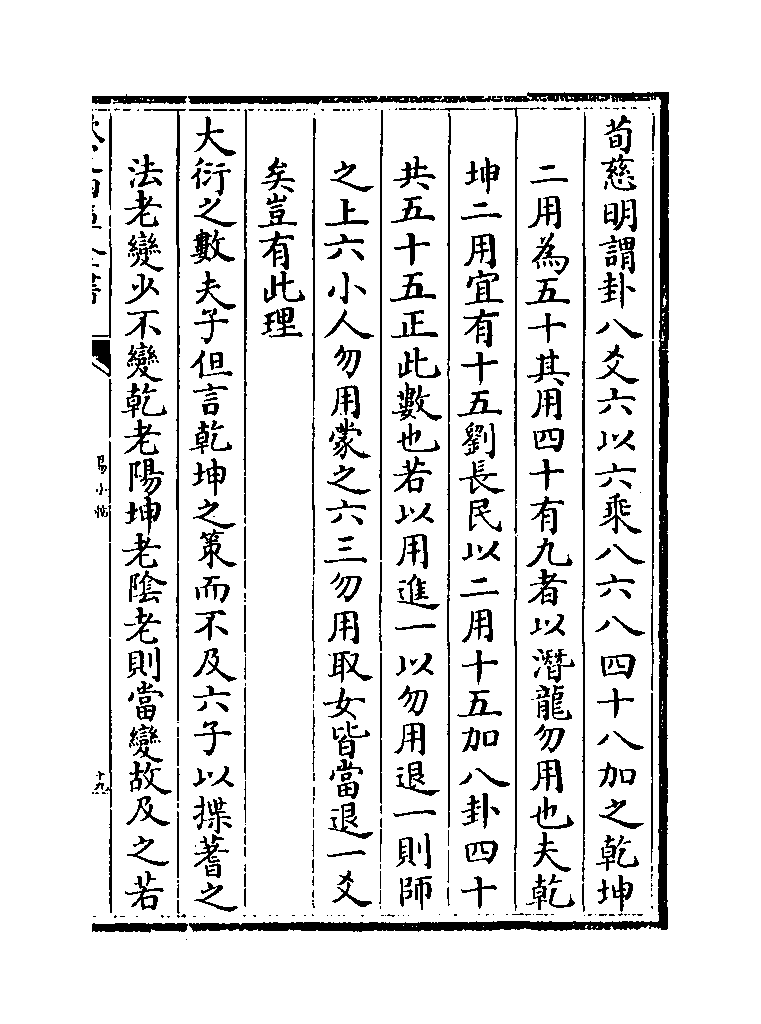 荀慈明謂卦八爻六以六乘八六八四十八加之乾坤
二用為五十其用四十有九者以潛龍勿用也夫乾
坤二用宜有十五劉長民以二用十五加八卦四十
共五十五正此數也若以用進一以勿用退一則師
之上六小人勿用蒙之六三勿用取女皆當退一爻
矣豈有此理
大衍之數夫子但言乾坤之策而不及六子以揲蓍之
法老變少不變乾老陽坤老陰老則當變故及之若
易小
十九